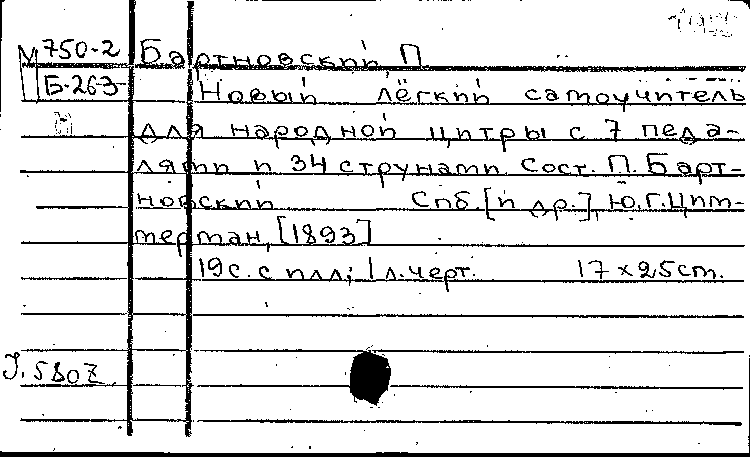 М 750-2 Бартновский, П.
Б-263
Новый лёгкий самоучитель
для народной цитры с 7 педа-
лями и 34 струнами. Сост. П. Барт-
новский Спб. [и др.], Ю. Г. Цим-
мерман, [1893]
19 с. с илл.; 1 л. черт. 17 x 25 cm.